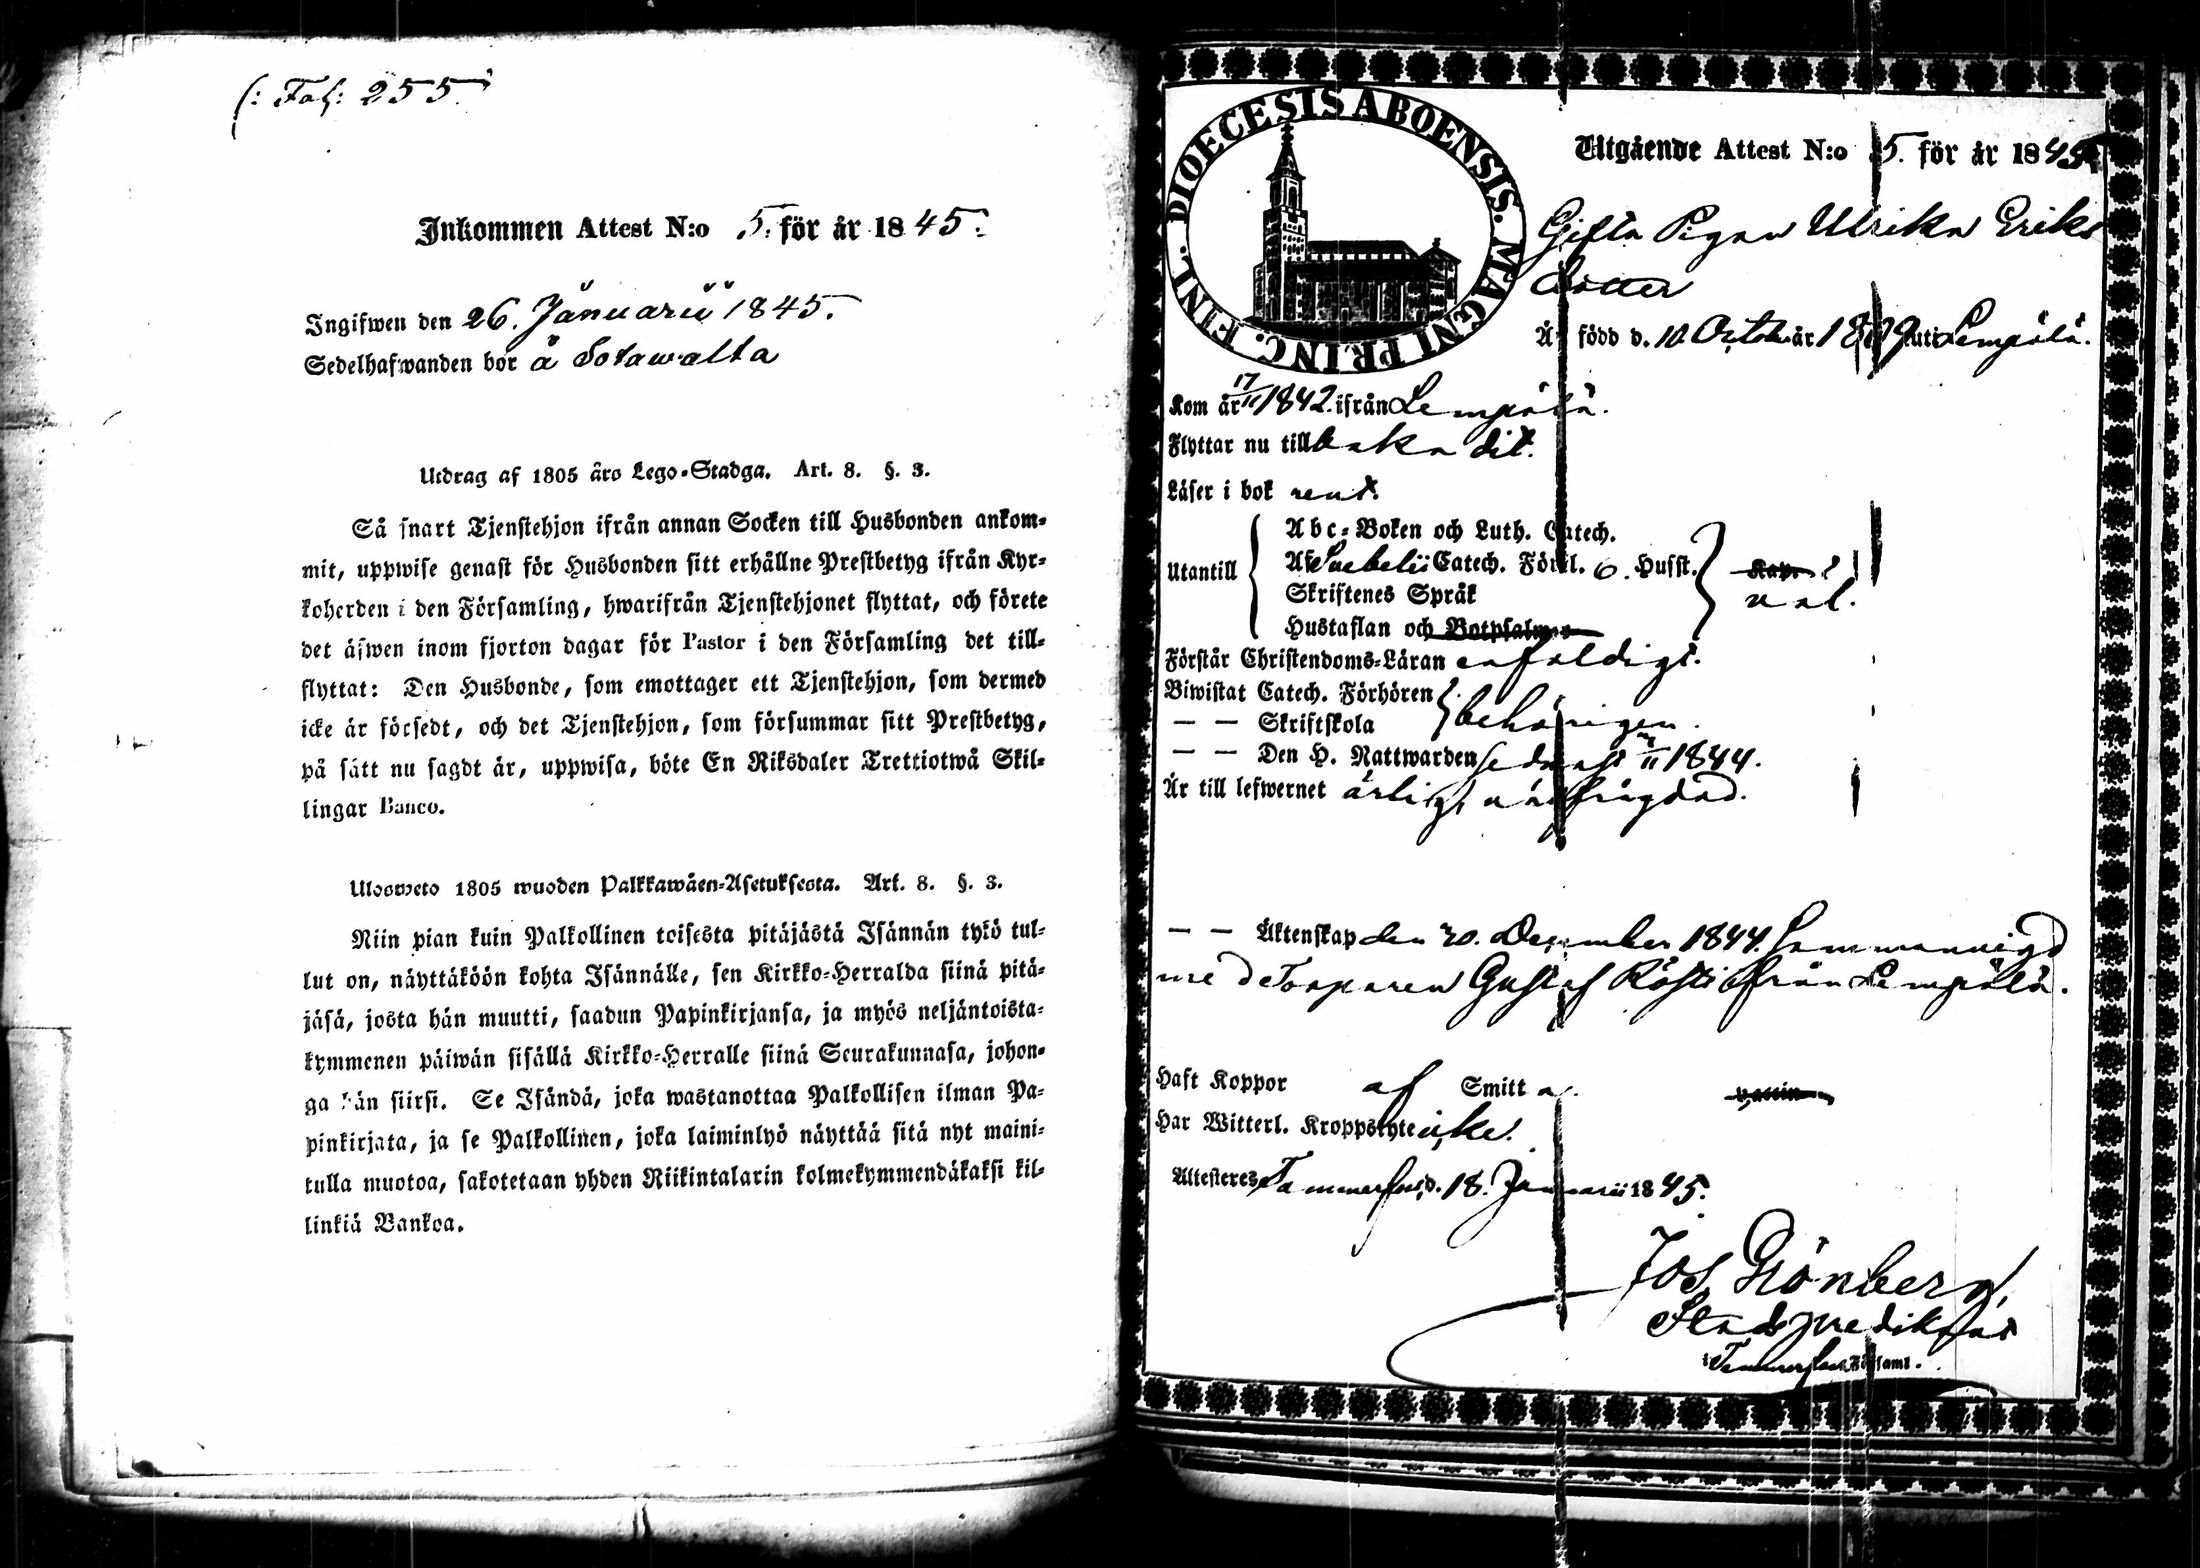 (: Fol: 255.
Inkommen Attest N:o 5. för år 1845.
Ingifwen den 26. Januarii 1845.
Sedelhafwanden bor å Sotawalta
Utdrag af 1805 års Lego-Stadga. Art. 8. §. 3.
Så snart Tjenstehjon ifrån annan Socken till Husbonden ankom-
mit, uppwise genast för Husbonden sitt erhållne Prestbetyg ifrån Kyr-
koherden i den Församling, hwarifrån Tjenstehjonet flyttat, och förete
det äfwen inom fjorton dagar för Pastor i den Församling det till-
flyttat: Den Husbonde, som emottager ett Tjenstehjon, som dermed
icke är försedt, och det Tjenstehjon, som försummar sitt Prestbetyg,
på sätt nu sagdt är, uppwisa, böte En Riksdaler Trettiotwå Skil-
lingar Banco.
Ulosweto 1805 wuoden Palkkawäen-Asetuksesta. Art. 8. §. 3.
Niin pian kuin Palkollinen toisesta pitäjästä Isännän tykö tul-
lut on, näyttäköön kohta Isännälle, sen Kirkko-Herralda siinä pitä-
jäsä, josta hän muutti, saadun Papinkirjansa, ja myös neljäntoista-
kymmenen päiwän sisällä Kirkko-Herralle siinä Seurakunnasa, johon-
ga hän siirsi. Se Isändä, joka wastanottaa Palkollisen ilman Pa-
pinkirjata, ja se Palkollinen, joka laiminlyö näyttää sitä nyt maini-
tulla muotoa, sakotetaan yhden Riikintalarin kolmekymmendäkaksi kil-
linkiä Bankoa.
DIOECESIS ABOENSIS. MAGNI PRINC. FINL.
Utgående Attest N:o 5. för år 1845
Gifta Pigan Ulrika Eriks
dotter
Är född d. 10 October år 18 9 uti Lempälä.
Kom år 17/11 1842. ifrån Lempälä.
Flyttar nu tillbaka dit.
Läser i bok rent.
Utantill
Abc-Boken och Luth. Catech.
Af Svebelii Catech. Förkl. 6. Husst. Kap.
Skriftenes Språk
val.
Hustaflan och Botpsalmer
Förstår Christendoms-Läran enfaldigt.
Biwistat Catech. Förhören
— — Skriftskola behörigen.
— — Den H. Nattwarden sednast /11 1844.
Är till lefwernet ärlig, väl frägdad.
— — Äktenskap den 30. December 1844. Sammanvigd
med Torparen Gustaf Rösti ifrån Lempälä.
Haft Koppor af Smitta. vaccin
Har Witterl. Kroppslyte icke.
Attesteres Tammerfors, d. 18. Januarii 1845.
Jos Grönberg,
Stadspredikant
i Tammerfors Församl.